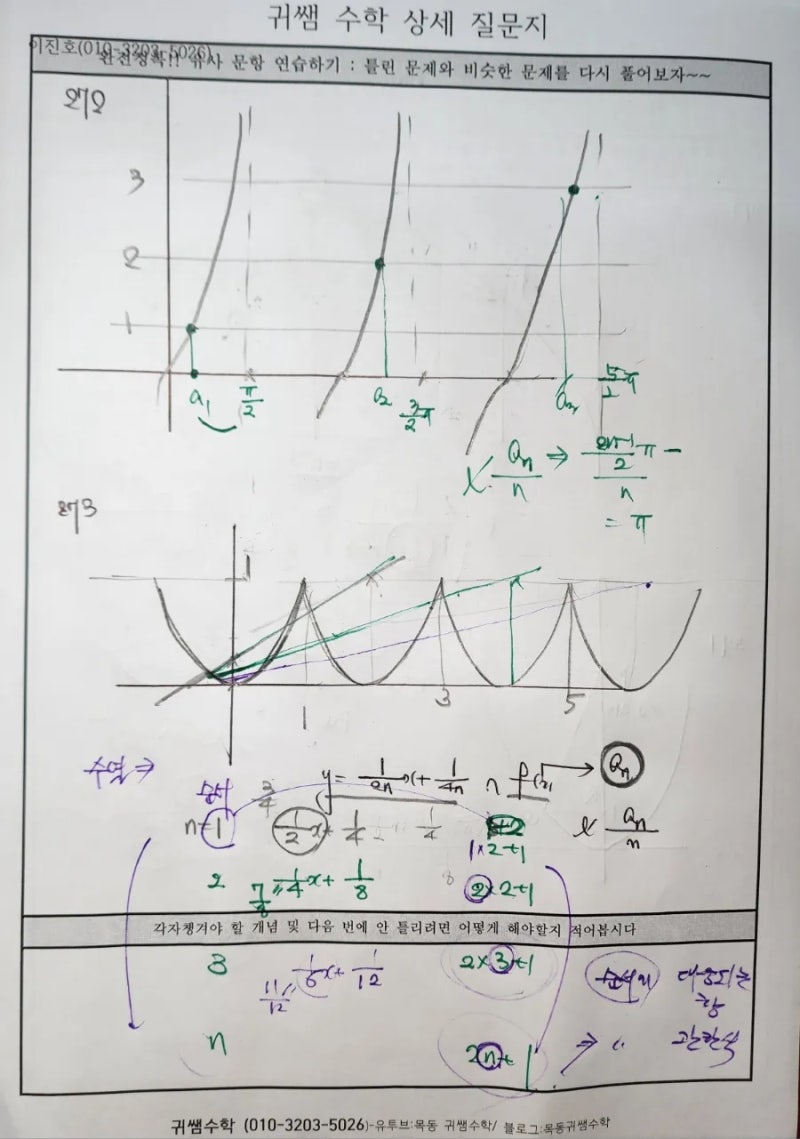 귀쌤 수학 상세 질문지
이진호(010-3203-5026)
완전정복!! 유사 문항 연습하기 : 틀린 문제와 비슷한 문제를 다시 풀어보자~~
272
3
2
1
a₁ π/2 a₂ 3/2π a₃ 5/2π
a_n/n ⇒
= π
273
1
1 3 5
수열 ⇒
순서 3/4 y = 1/2n x + 1/4n n f(x) → a_n
n=1 1/2 x + 1/4 1/4 a_n/n
1×2+1
2 7/8 1/4 x + 1/8 2×2+1
각자챙겨야 할 개념 및 다음 번에 안 틀리려면 어떻게 해야할지 적어봅시다
3 11/12 1/6 x + 1/12 2×3+1 순서에 대응되는
항
n 2n+1 ⇒ 〃 관한식
귀쌤수학 (010-3203-5026)-유투브:목동 귀쌤수학/ 블로그:목동귀쌤수학